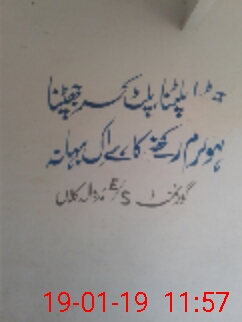 جھپٹنا پلٹنا، پلٹ کر جھپٹنا
لہو گرم رکھنے کا ہے اک بہانہ
گورنمنٹ E/S کلاں
19-01-19 11:57